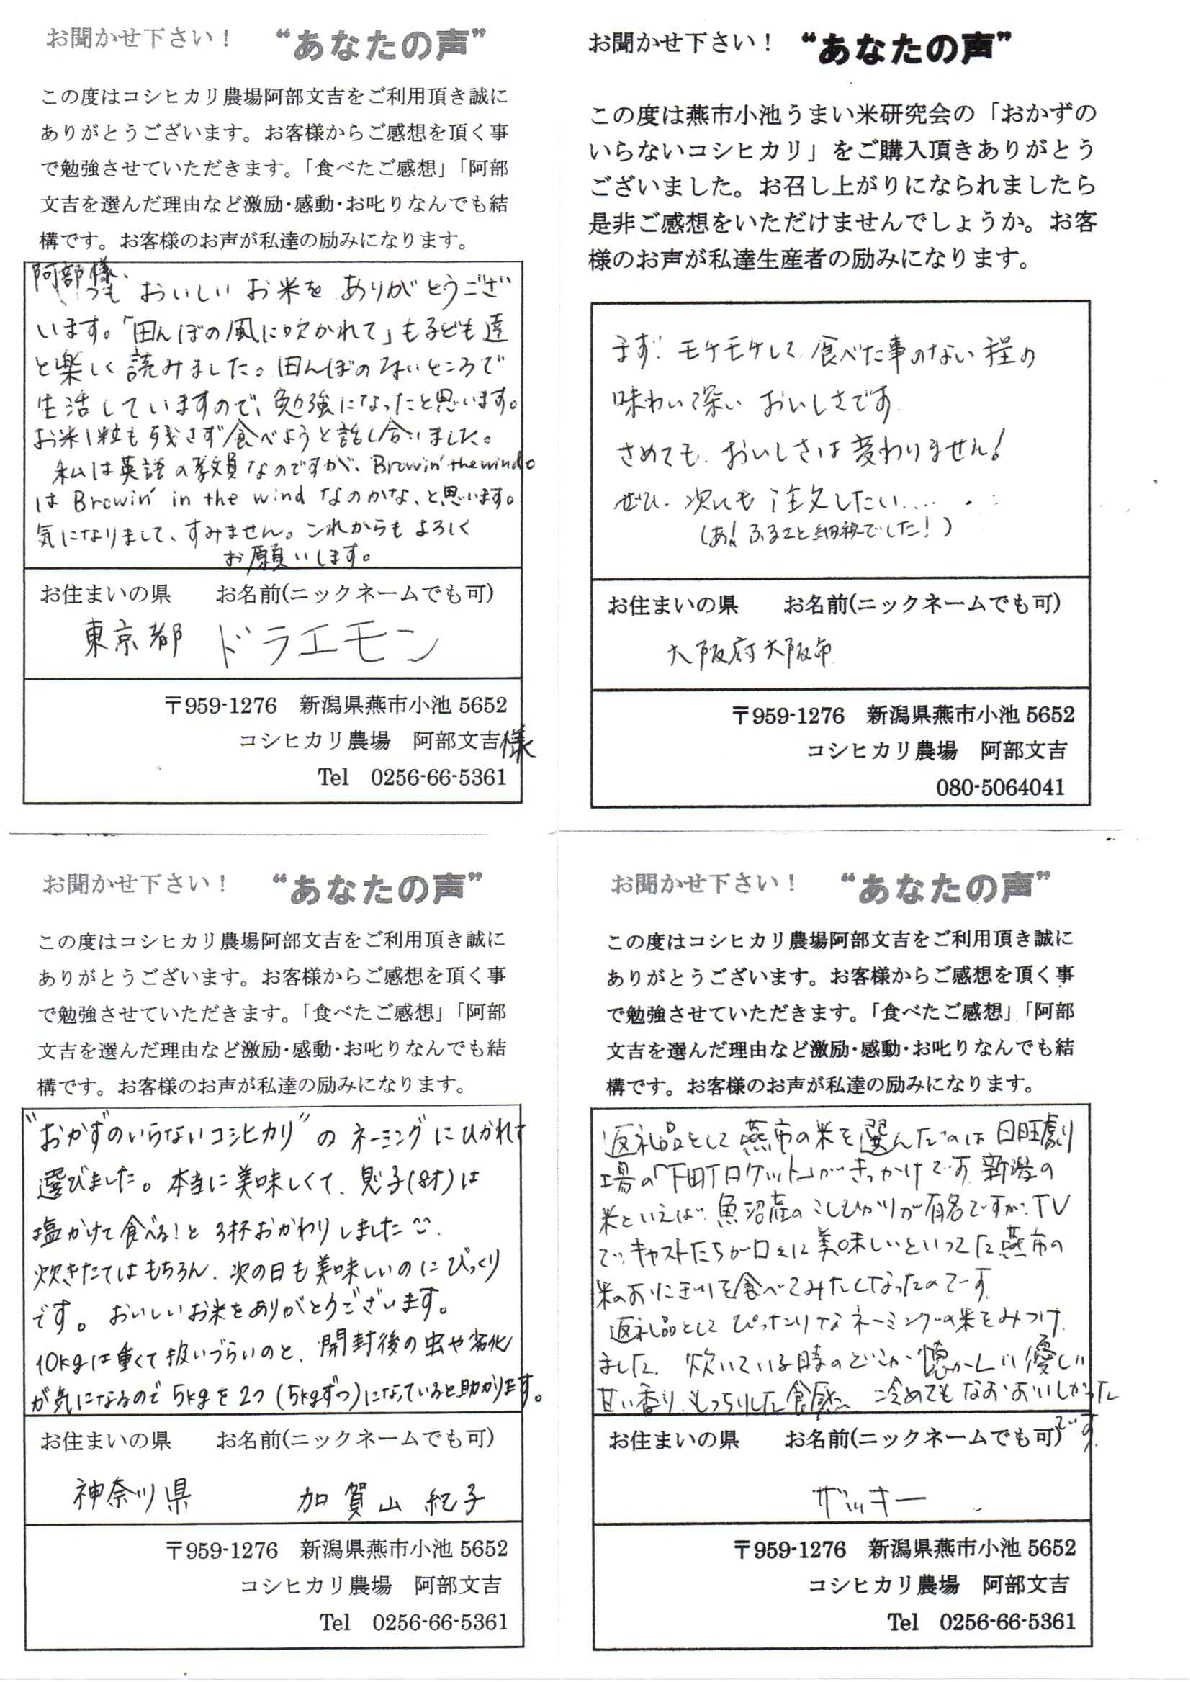 お聞かせ下さい！ “あなたの声”
この度はコシヒカリ農場阿部文吉をご利用頂き誠に
ありがとうございます。お客様からご感想を頂く事
で勉強させていただきます。「食べたご感想」「阿部
文吉を選んだ理由など激励・感動・お叱りなんでも結
構です。お客様のお声が私達の励みになります。
阿部様、
いつも おいしい お米を ありがとうござ
います。「田んぼの風に吹かれて」も子ども達
と楽しく読みました。田んぼのないところで
生活していますので、勉強になったと思います。
お米1粒も残さず食べようと話し合いました。
私は英語の教員なのですが、Browin' the windo
は Browin' in the wind なのかな、と思います。
気になりまして、すみません。これからもよろしく
お願いします。
お住まいの県 お名前(ニックネームでも可)
東京都 ドラエモン
〒959-1276 新潟県燕市小池 5652
コシヒカリ農場 阿部文吉様
Tel 0256-66-5361
お聞かせ下さい！ “あなたの声”
この度は燕市小池うまい米研究会の「おかずの
いらないコシヒカリ」をご購入頂きありがとう
ございました。お召し上がりになられましたら
是非ご感想をいただけませんでしょうか。お客
様のお声が私達生産者の励みになります。
まず! モチモチして 食べた事のない程の
味わい深い おいしさです
さめても、おいしさは変わりません!
ぜひ、次にも 注文したい.....
(あ! ふるさと納税でした!)
お住まいの県 お名前(ニックネームでも可)
大阪府大阪市
〒959-1276 新潟県燕市小池 5652
コシヒカリ農場 阿部文吉
080-5064041
お聞かせ下さい！ “あなたの声”
この度はコシヒカリ農場阿部文吉をご利用頂き誠に
ありがとうございます。お客様からご感想を頂く事
で勉強させていただきます。「食べたご感想」「阿部
文吉を選んだ理由など激励・感動・お叱りなんでも結
構です。お客様のお声が私達の励みになります。
"おかずのいらないコシヒカリ"の ネーミングにひかれて
選びました。本当に美味しくて、息子(8才)は
塩かけて食べる!と 3杯おかわりしました
炊きたてはもちろん、次の日も美味しいのにびっくり
です。おいしいお米をありがとうございます。
10kgは重くて扱いづらいのと、開封後の虫や劣化
が気になるので 5kgを2つ(5kgずつ)になっていると助かります。
お住まいの県 お名前(ニックネームでも可)
神奈川県 加賀山 紀子
〒959-1276 新潟県燕市小池 5652
コシヒカリ農場 阿部文吉
Tel 0256-66-5361
お聞かせ下さい！ “あなたの声”
この度はコシヒカリ農場阿部文吉をご利用頂き誠に
ありがとうございます。お客様からご感想を頂く事
で勉強させていただきます。「食べたご感想」「阿部
文吉を選んだ理由など激励・感動・お叱りなんでも結
構です。お客様のお声が私達の励みになります。
返礼品として燕市の米を選んだのは日曜劇
場の「下町ロケット」がきっかけです。新潟の
米といえば、魚沼産のこしひかりが有名ですが、TV
で、キャストたちが口々に美味しいといってた燕市の
米のおにぎりを食べてみたくなったのです。
返礼品として ぴったりなネーミングの米をみつけ
ました。炊いている時のどこか懐かしい優しい
甘い香り、もっちりした食感〜 冷めてもなおおいしかった
です。
お住まいの県 お名前(ニックネームでも可)
ザッキー
〒959-1276 新潟県燕市小池 5652
コシヒカリ農場 阿部文吉
Tel 0256-66-5361